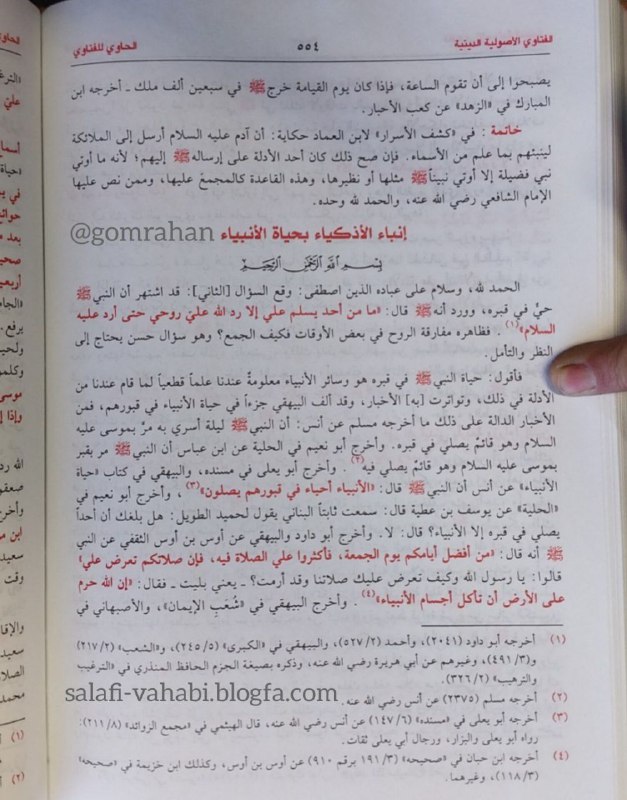 الفتاوي الأصولية الدينية
٥٥٤
الحاوي للفتاوي
يصبحوا إلى أن تقوم الساعة، فإذا كان يوم القيامة خرج ﷺ في سبعين ألف ملك ـ أخرجه ابن
المبارك في «الزهد» عن كعب الأحبار.
خاتمة : في «كشف الأسرار» لابن العماد حكاية: أن آدم عليه السلام أرسل إلى الملائكة
لينبئهم بما علم من الأسماء. فإن صح ذلك كان أحد الأدلة على إرساله ﷺ إليهم؛ لأنه ما أوتي
نبي فضيلة إلا أوتي نبينا ﷺ مثلها أو نظيرها، وهذه القاعدة كالمجمع عليها، وممن نص عليها
الإمام الشافعي رضي الله عنه، والحمد لله وحده.
إنباء الأذكياء بحياة الأنبياء @gomrahan
بسم الله الرحمن الرحيم
الحمد لله، وسلام على عباده الذين اصطفى: وقع السؤال [الثاني]: قد اشتهر أن النبي ﷺ
حيٌّ في قبره، وورد أنه ﷺ قال: «ما من أحد يسلم علي إلا رد الله عليّ روحي حتى أرد عليه
السلام»(١) . فظاهره مفارقة الروح في بعض الأوقات فكيف الجمع؟ وهو سؤال حسن يحتاج إلى
النظر والتأمل.
فأقول: حياة النبي ﷺ في قبره هو وسائر الأنبياء معلومةٌ عندنا علماً قطعياً لما قام عندنا من
الأدلة في ذلك، وتواترت [به] الأخبار، وقد ألف البيهقي جزءاً في حياة الأنبياء في قبورهم، فمن
الأخبار الدالة على ذلك ما أخرجه مسلم عن أنس: أن النبي ﷺ ليلة أسري به مرّ بموسى عليه
السلام وهو قائمٌ يصلي في قبره. وأخرج أبو نعيم في الحلية عن ابن عباس أن النبي ﷺ مر بقبر
بموسى عليه السلام وهو قائمٌ يصلي فيه(٢) . وأخرج أبو يعلى في مسنده، والبيهقي في كتاب «حياة
الأنبياء» عن أنس أن النبي ﷺ قال: «الأنبياء أحياء في قبورهم يصلون»(٣) ، وأخرج أبو نعيم في
«الحلية» عن يوسف بن عطية قال: سمعت ثابتاً البناني يقول لحميد الطويل: هل بلغك أن أحداً
يصلي في قبره إلا الأنبياء؟ قال: لا. وأخرج أبو داود والبيهقي عن أوس بن أوس الثقفي عن النبي
ﷺ أنه قال: «من أفضل أيامكم يوم الجمعة، فأكثروا علي الصلاة فيه، فإن صلاتكم تعرض علي»
قالوا: يا رسول الله وكيف تعرض عليك صلاتنا وقد أرمت؟ ـ يعني بليت ـ فقال: «إن الله حرم
على الأرض أن تأكل أجسام الأنبياء»(٤) . وأخرج البيهقي في «شُعَبِ الإيمان»، والأصبهاني في
(١) أخرجه أبو داود (٢٠٤١)، وأحمد (٥٢٧/٢)، والبيهقي في «الكبرى» (٢٤٥/٥)، و«الشعب» (٢١٧/٢)
و(٤٩١/٣)، وغيرهم عن أبي هريرة رضي الله عنه، وذكره بصيغة الجزم الحافظ المنذري في «الترغيب
والترهيب» (٣٢٦/٢).
salafi-vahabi.blogfa.com
(٢) أخرجه مسلم (٢٣٧٥) عن أنس رضي الله عنه.
(٣) أخرجه أبو يعلى في «مسنده» (١٤٧/٦) عن أنس رضي الله عنه، قال الهيثمي في «مجمع الزوائد» (٢١١/٨):
رواه أبو يعلى والبزار، ورجال أبي يعلى ثقات.
(٤) أخرجه ابن حبان في «صحيحه» (١٩١/٣ برقم ٩١٠) عن أوس بن أوس، وكذلك ابن خزيمة في «صحيحه»
(١١٨/٣)، وغيرهما.